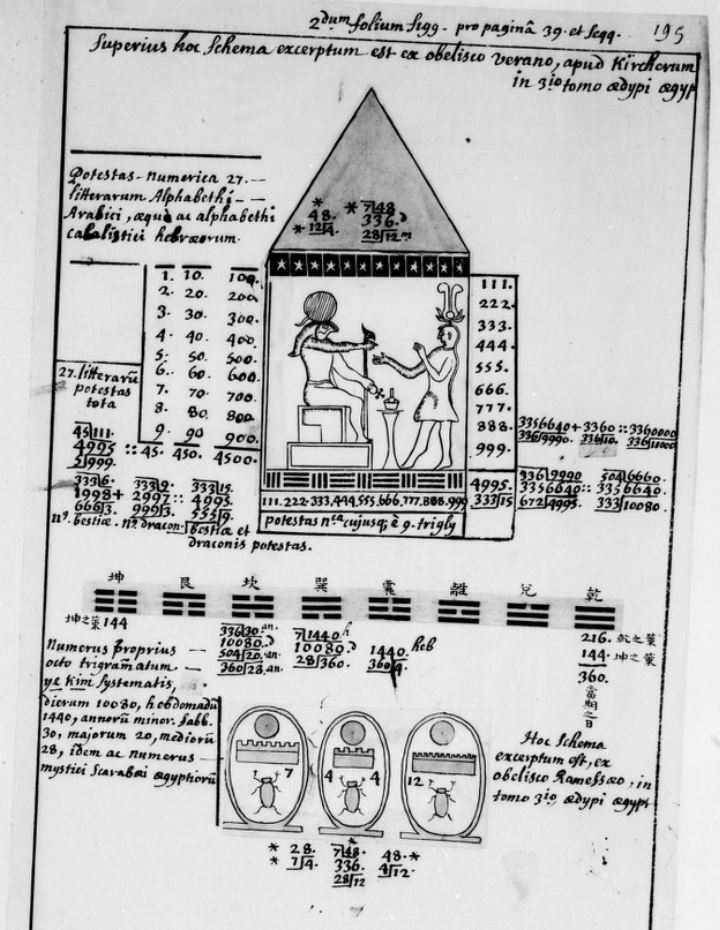 2dum folium figg. pro paginâ 39. et seqq.
195
Superius hoc schema excerptum est ex obelisco verano, apud Kircherum
in 3io tomo ædypi ægyp
Potestas numerica 27.
litterarum Alphabethi
Arabici, æquè ac alphabethi
cabalistici hebræorum.
* 48. * 7|48
* 12|4. 336.
28|12
1. 10. 100.
2. 20. 200.
3. 30. 300.
4. 40. 400.
5. 50. 500.
6. 60. 600.
7. 70. 700.
8. 80. 800.
9. 90 900.
:: 45. 450. 4500.
27. litterarū
potestas
tota
45|111.
4995
5|999.
333|6. 333|9. 333|15.
1998 + 2997 :: 4995.
666|3. 999|3. 555|9.
nº. bestiæ. nº. dracon. bestiæ et
draconis potestas.
111.
222.
333.
444.
555.
666.
777.
888.
999.
4995.
333|15
3356640 + 3360 :: 3360000
336|9990. 336|10. 336|10000
336|9990 504|6660.
3356640 :: 3356640.
672|4995. 333|10080.
111. 222. 333. 444. 555. 666. 777. 888. 999
potestas nca cujusq; è 9. trigly
坤 艮 坎 巽 震 離 兌 乾
坤之策 144
336|30. an.
10080. d
504|20. an.
360|28. an.
7|1440. h
10080. d
28|360.
1440. heb
360|4.
216. 乾之策
144. 坤之策
360.
當期之日
Numerus proprius
octo trigramatum
ye kim systematis,
dierum 10080, hebdomadū
1440, annorū minor. sabb.
30, majorum 20, mediorū
28, idem ac numerus
mystici scarabæi ægyptiorū
7 4 4 12
Hoc schema
excerptum est, ex
obelisco Ramessæo, in
tomo 3io ædypi ægypt
* 28. 7|48. 48. *
* 7|4. 336. 4|12.
28|12